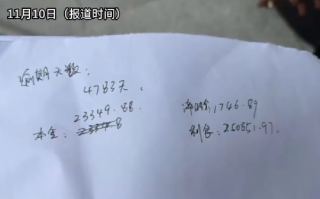 11月10日（报道时间）
逾期天数：
4783天。
23349.88.
本金：
1746.89
利息：250851.97.